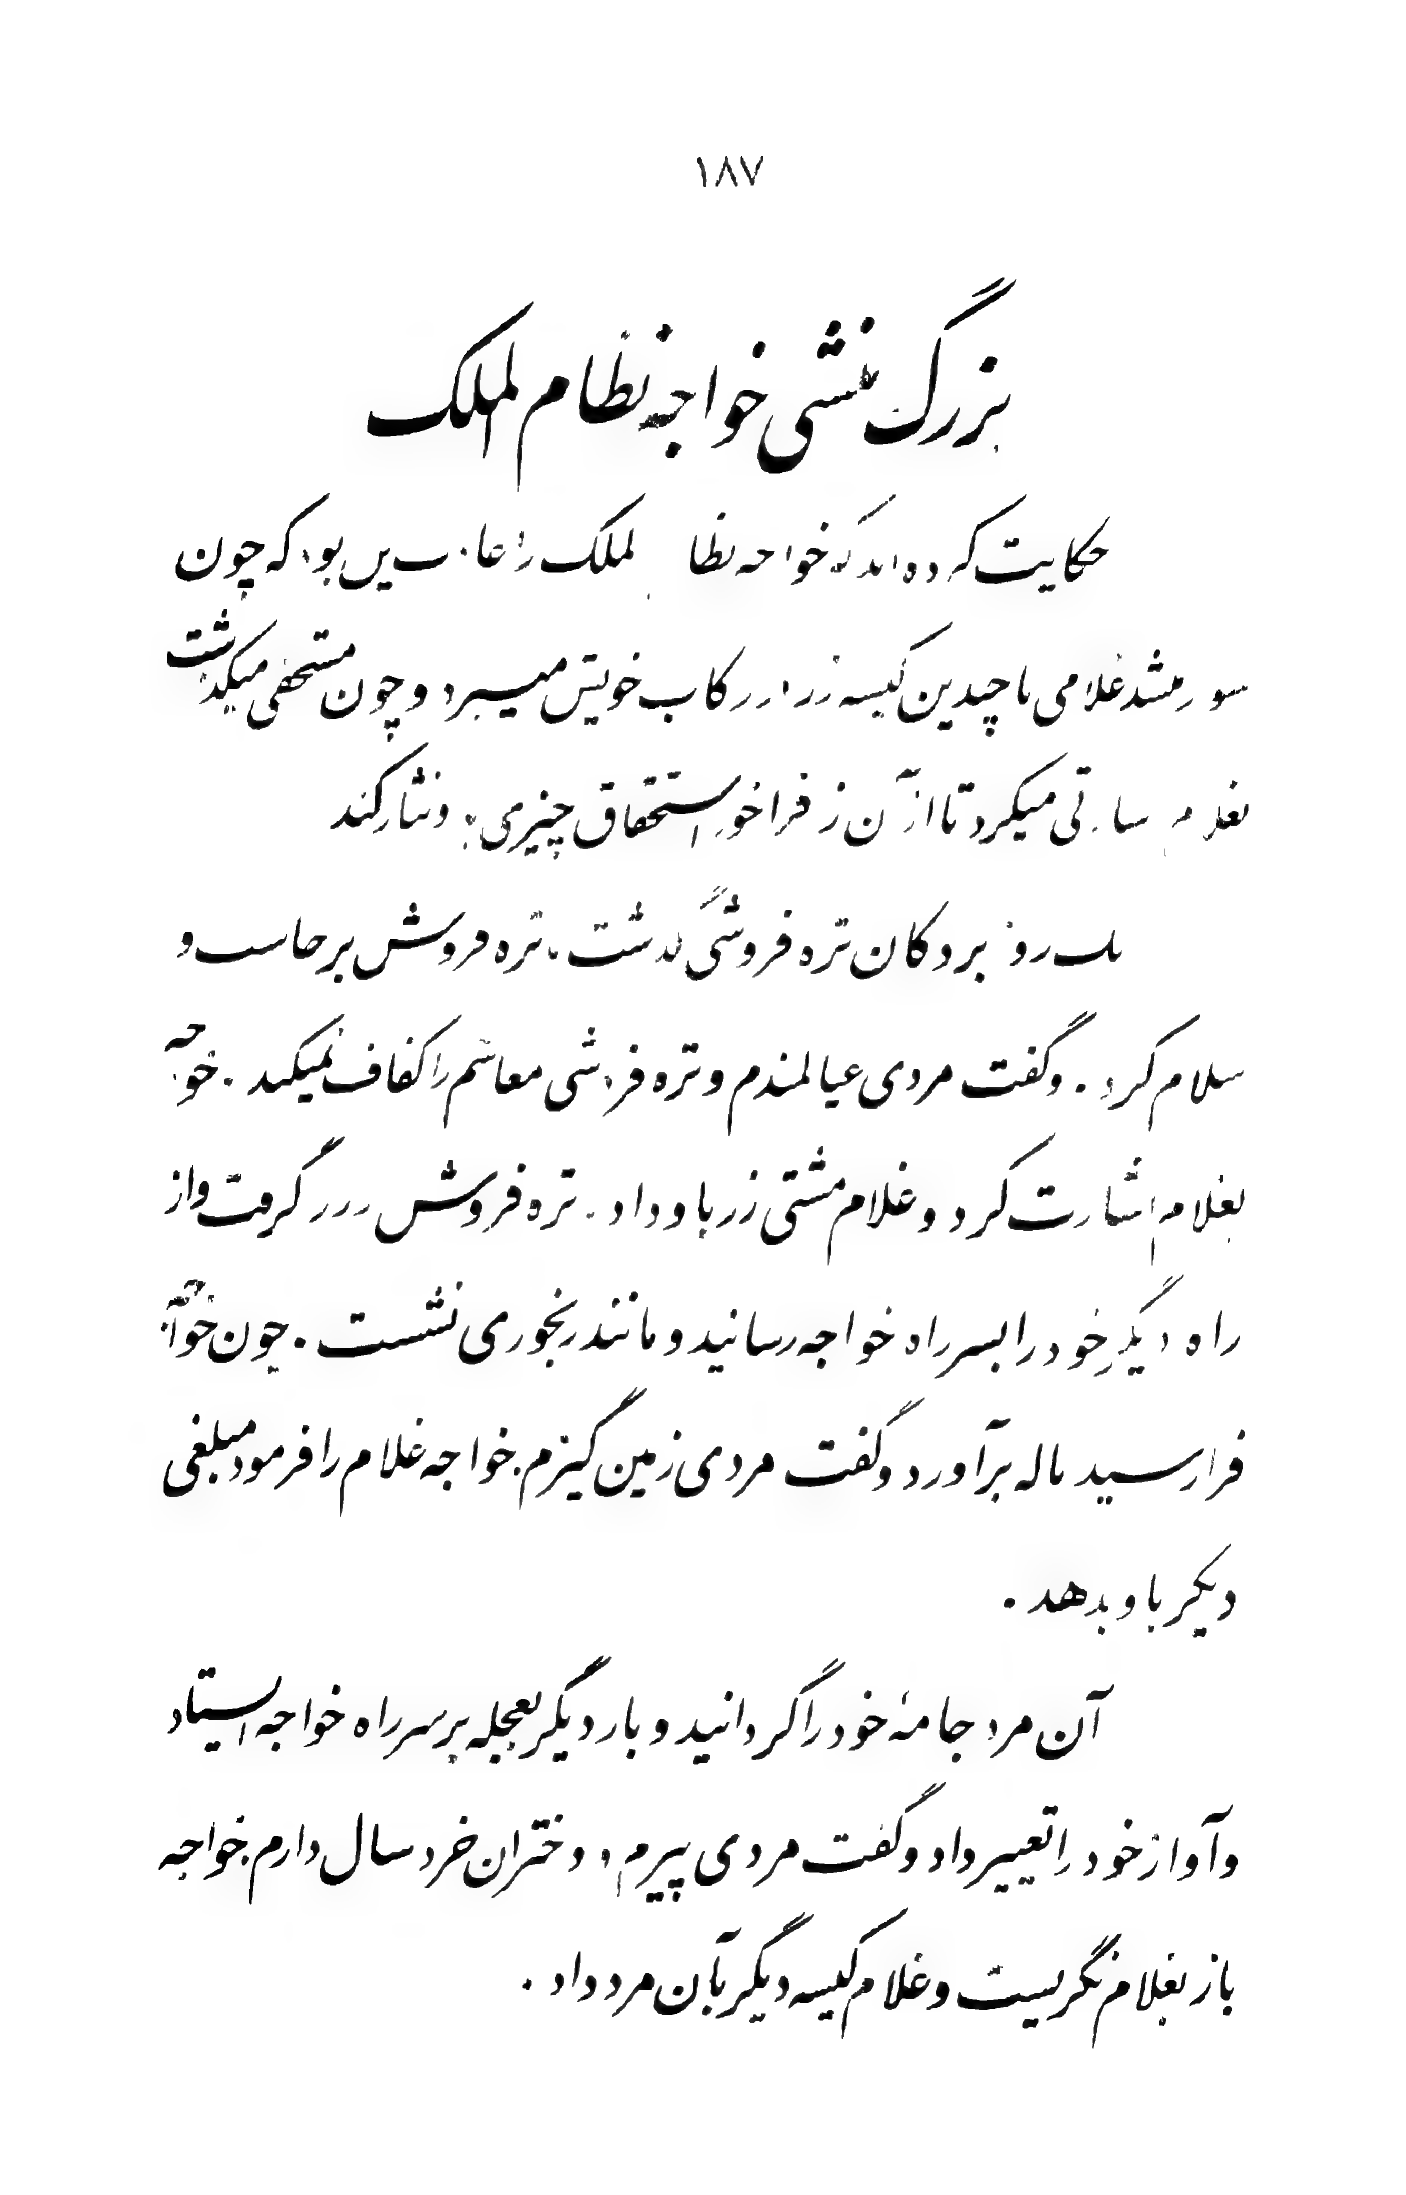 ۱۸۷
بزرگ منشی خواجه نظام الملک
حکایت کرده‌اند که خواجه نظام الملک را عادت این بود که چون
سوار میشد غلامی با چندین کیسه زر در رکاب خویش میبرد و چون مستحقی میگذشت
بغلام اشارتی میکرد تا از آن زر فراخور استحقاق چیزی باو نثار کند
یک روز بر دکان تره فروشی گذشت، تره فروش برخاست و
سلام کرد. و گفت مردی عیالمندم و تره فروشی معاشم را کفاف نمیکند. خواجه
بغلام اشارت کرد و غلام مشتی زر باو داد. تره فروش زر گرفت و از
راه دیگر خود را بسر راه خواجه رسانید و مانند رنجوری نشست. چون خواجه آنجا
فرا رسید ناله برآورد و گفت مردی زمین گیرم. خواجه غلام را فرمود مبلغی
دیگر باو بدهد.
آن مرد جامهٔ خود را گردانید و بار دیگر بعجله بر سر راه خواجه ایستاد
و آواز خود را تغییر داد و گفت مردی پیرم و دختران خرد سال دارم. خواجه
باز بغلام نگریست و غلام کیسه دیگر بآن مرد داد.